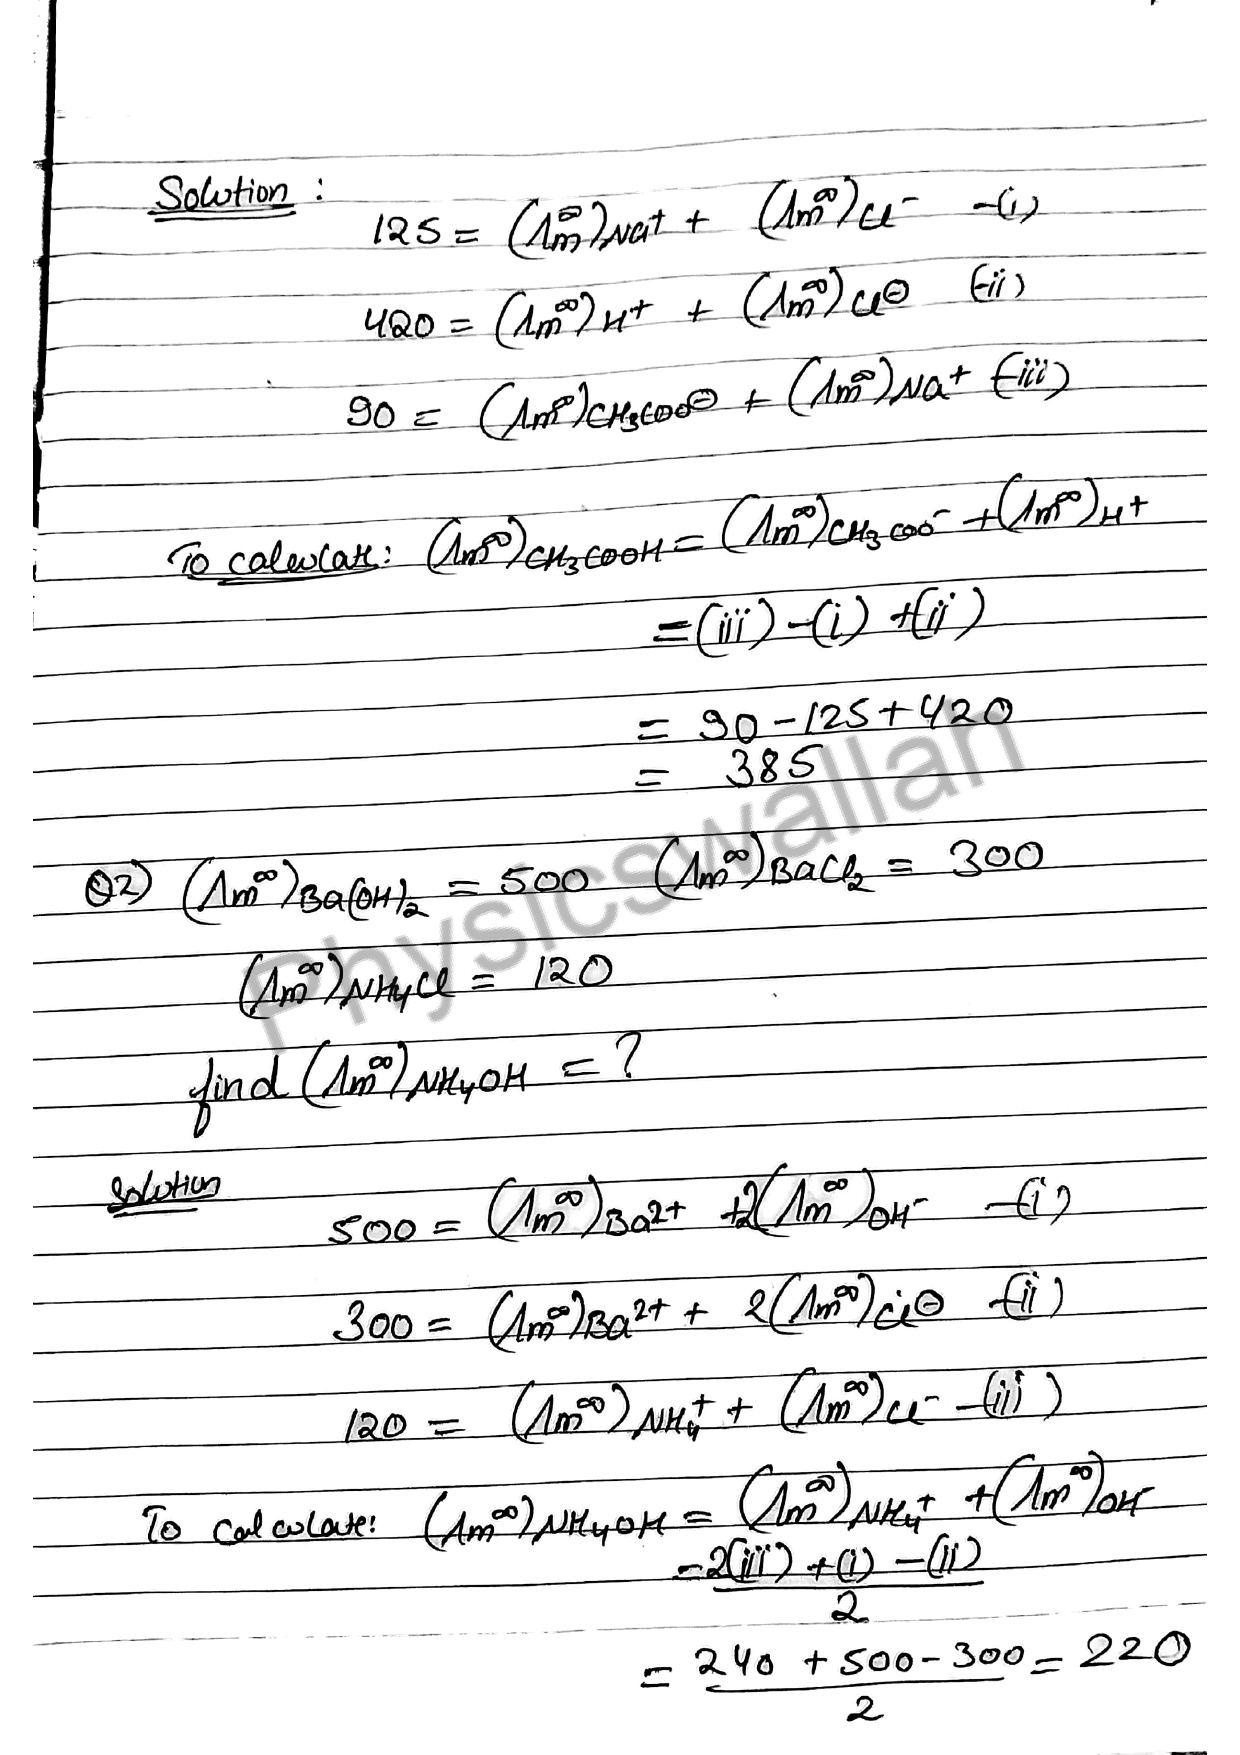 Solution :
125 = (Λm^∞)Na⁺ + (Λm^∞)Cl⁻ -(i)
420 = (Λm^∞)H⁺ + (Λm^∞)Cl⊖ -(ii)
90 = (Λm^∞)CH₃COO⊖ + (Λm^∞)Na⁺ -(iii)
To calculate: (Λm^∞)CH₃COOH = (Λm^∞)CH₃COO⁻ + (Λm^∞)H⁺
= (iii) - (i) + (ii)
= 90 - 125 + 420
= 385
Q2) (Λm^∞)Ba(OH)₂ = 500 (Λm^∞)BaCl₂ = 300
(Λm^∞)NH₄Cl = 120
find (Λm^∞)NH₄OH = ?
Solution
500 = (Λm^∞)Ba²⁺ + 2(Λm^∞)OH⁻ -(i)
300 = (Λm^∞)Ba²⁺ + 2(Λm^∞)Cl⊖ -(ii)
120 = (Λm^∞)NH₄⁺ + (Λm^∞)Cl⁻ -(iii)
To calculate: (Λm^∞)NH₄OH = (Λm^∞)NH₄⁺ + (Λm^∞)OH⁻
= 2(iii) + (i) - (ii)
2
= 240 + 500 - 300 = 220
2
Physicswallah